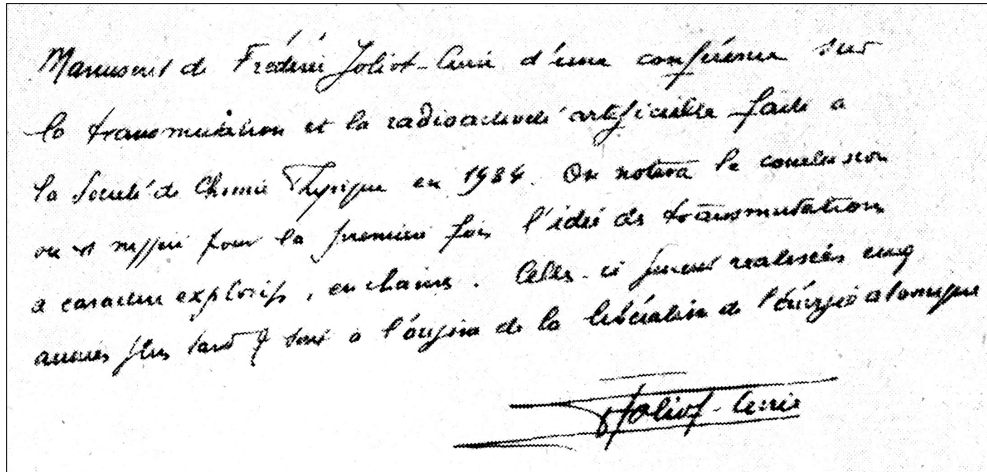 Manuscrit de Frédéric Joliot-Curie d'une conférence sur
la transmutation et la radioactivité artificielle faite a
la Société de Chimie Physique en 1934. On notera la conclusion
ou est pour la premiere fois l'idée de transmutations
a caractere explosif, en chaines. Celles-ci furent realisées cinq
années plus tard & sont a l'origine de la libération de l'énergie atomique
F Joliot-Curie